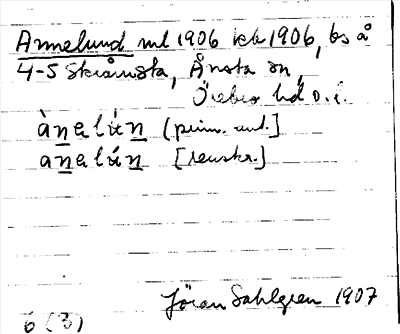 Annelund ml 1906 kb 1906, bs å
4-5 Skråmsta, Ånsta sn,
Örebro hd o. l.
ànelún (prim. uut.]
anelún [renskr.]
Jöran Sahlgren 1907
6 (3)